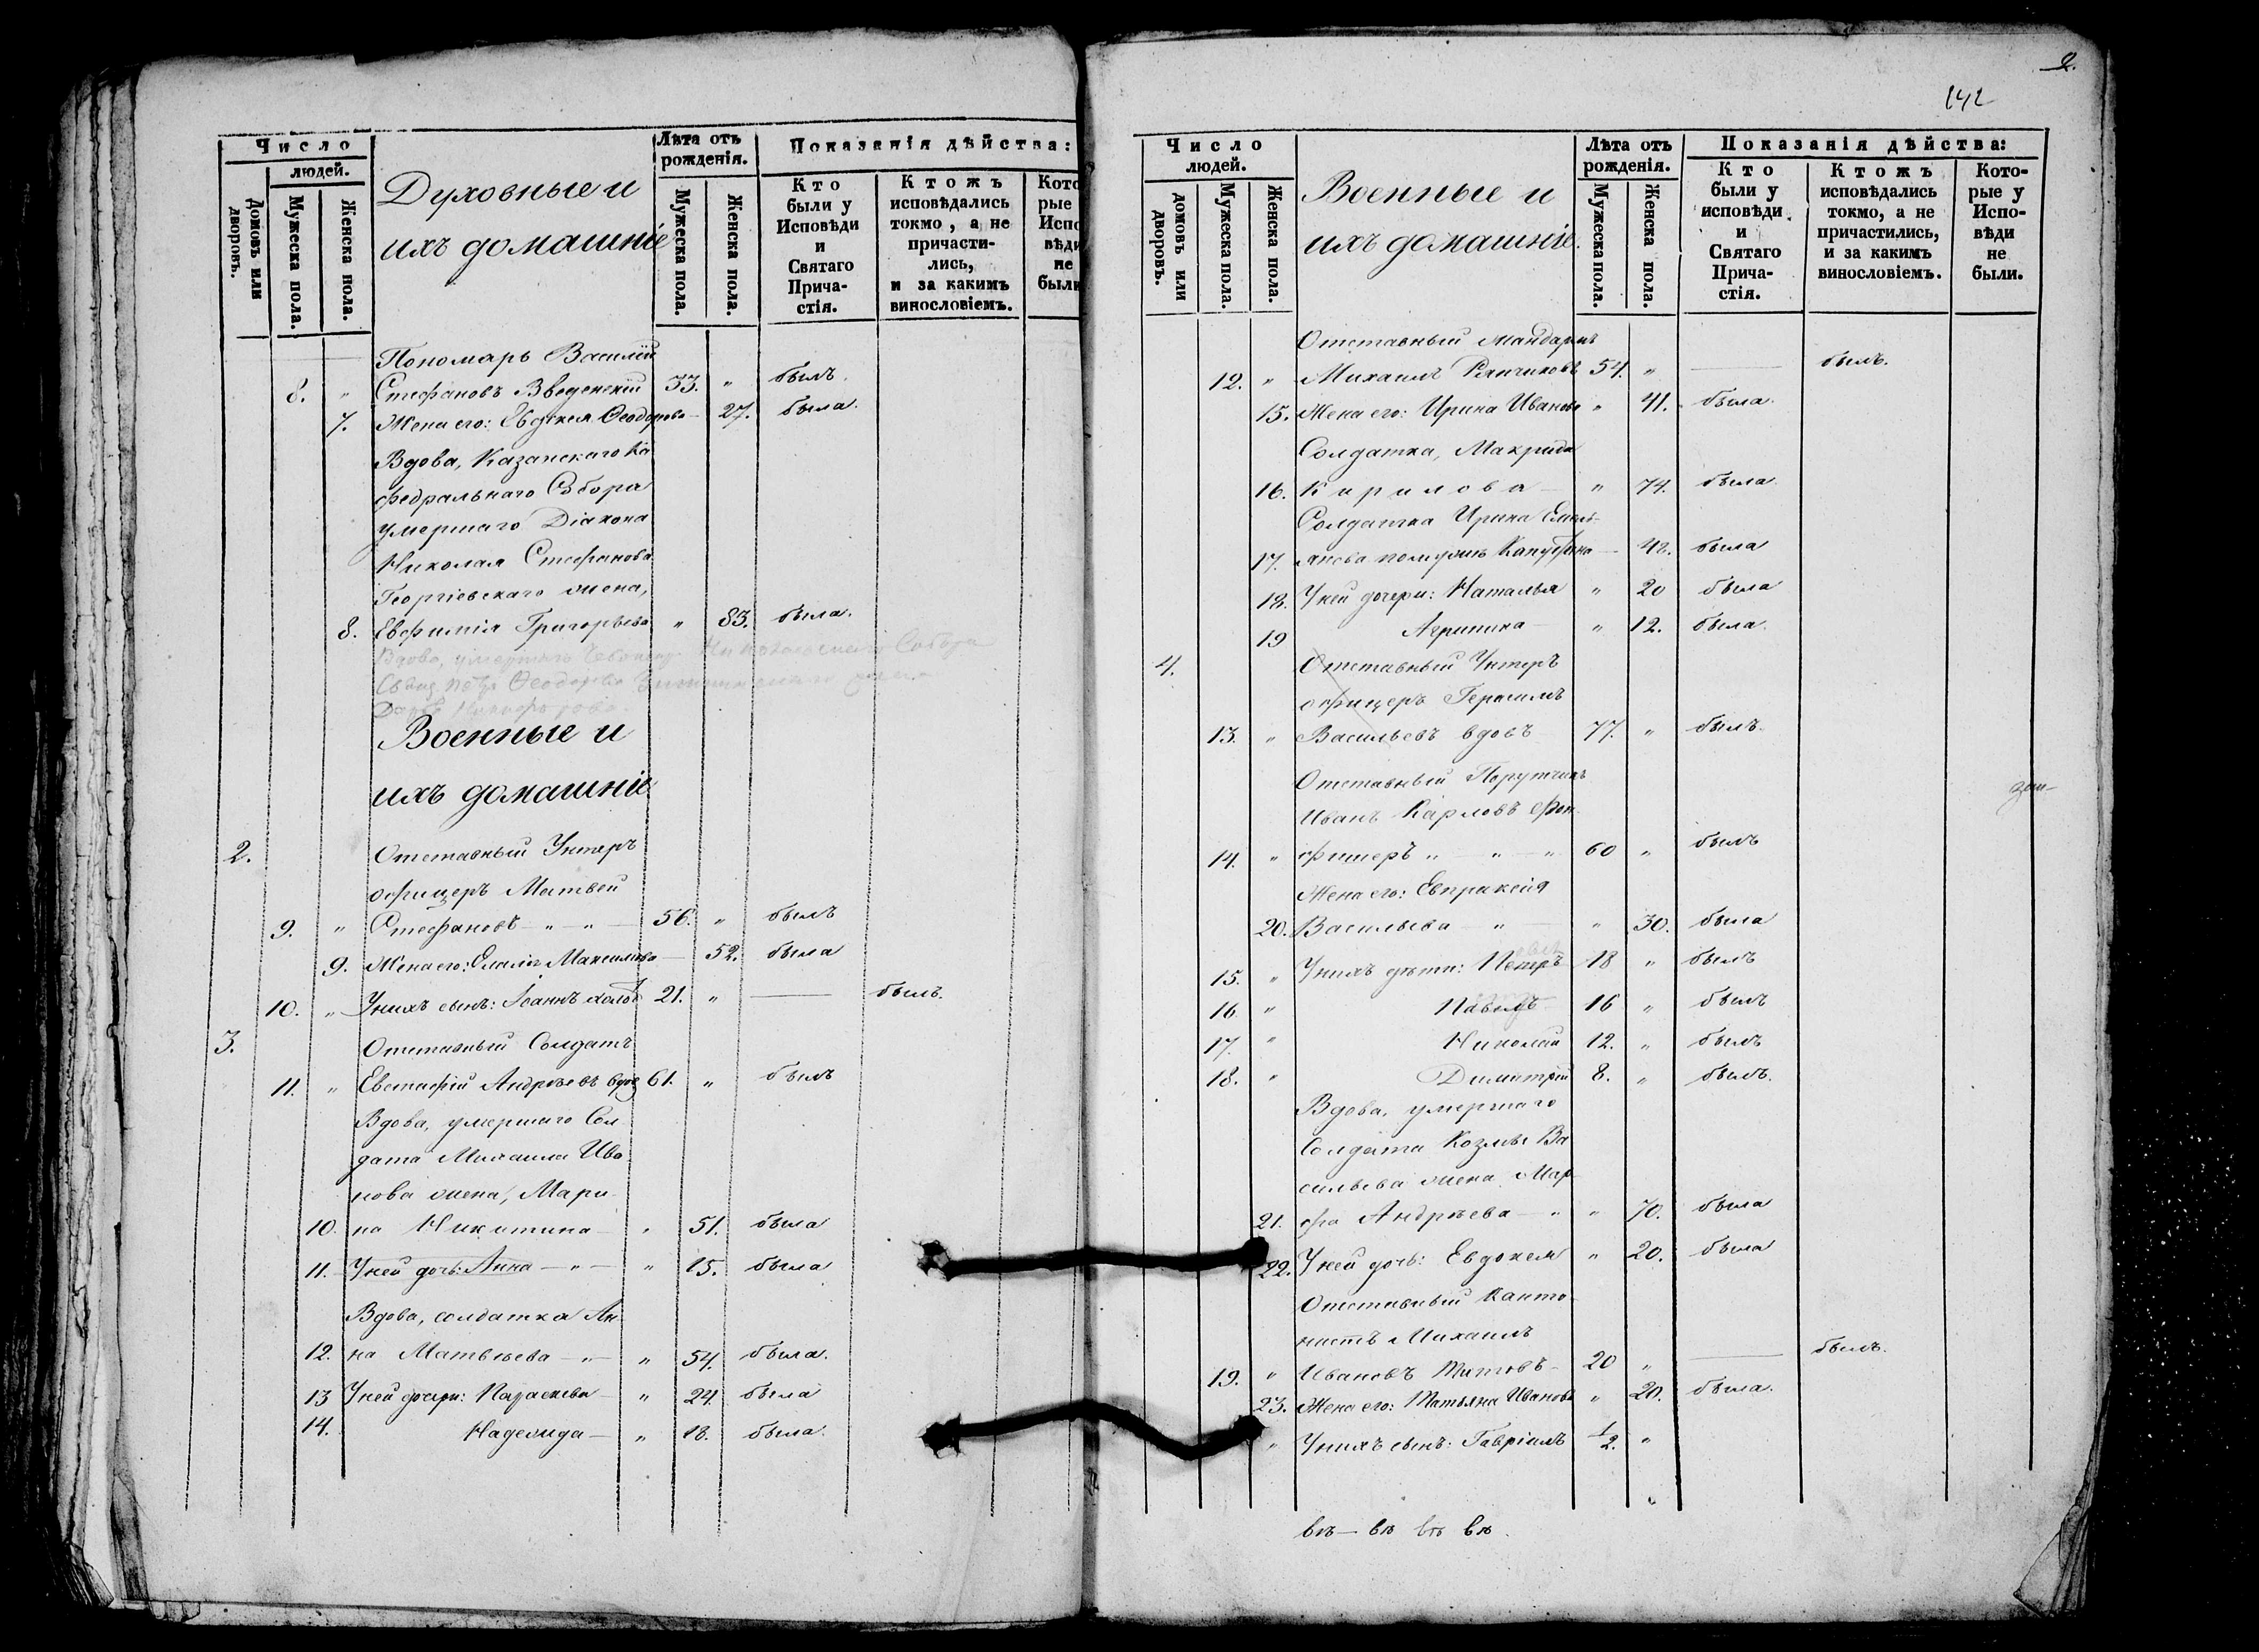 Число
людей.
Домовъ или дворовъ.
Мужеска пола.
Женска пола.
Духовные и
ихъ домашніе
Лѣта отъ рожденія.
Мужеска пола.
Женска пола.
Показанія дѣйства:
Кто были у Исповѣди и Святаго Прича-стія.
Ктожъ исповѣдались токмо, а не причасти-лись, и за какимъ винословіемъ.
Кото рые Испо вѣди не были
Пономарь Василій
8. " Стефановъ Введенскій 33. " былъ.
7. Жена его: Евдокея Ѳеодорова — 27. была.
Вдова, Казанскаго Ка
федральнаго Собора
умершаго Діакона
Николая Стефанова
Георгіевскаго жена,
8. Евфимія Григорьева " 83. была.
Вдова,
Военные и
ихъ домашніе
2. Отставный Унтеръ
офицеръ Матвей
9. " Стефановъ — " — " — 56. " былъ
9. Жена его: Максимова — 52. была
10. " У нихъ сынъ: Іоаннъ холос 21. " — былъ.
3. Отставный Солдатъ
11. " Евстафій Андреевъ вдов 61. " былъ
Вдова, умершаго Сол
дата Михаила Ива
нова жена, Мари
10. на Никитина — " 51. была
11. У ней дочь: Анна — " — " 15. была
Вдова, солдатка Ан
12. на Матвеева — " — " 54. была.
13 У ней дочери: Параскева — " 24. была
14. Надежида — " 18. была.
2.
142
Число
людей.
домовъ или дворовъ.
Мужеска пола.
Женска пола.
Военные и
ихъ домашніе.
Лѣта отъ рожденія.
Мужеска пола.
Женска пола.
Показанія дѣйства:
Кто были у исповѣди и Святаго Прича-стія.
Ктожъ исповѣдались токмо, а не причастились, и за какимъ винословіемъ.
Кото-рые у Испо-вѣди не были.
Отставный
12. " Михаилъ 54. " — былъ.
15. Жена его: Ирина Иванова " 41. была.
Солдатка, Макрида
16. Кирилова — " 74. была.
Солдатка Ирина Емель-
17. янова — 42. была
18. У ней дочери: Наталья " 20 была
19 Агрипина — " 12. была.
4. Отставный Унтеръ
офицеръ Герасимъ
13. " Васильевъ вдовъ 77. " былъ.
Отставный Порутчикъ
Иванъ Карловъ Фон
14. " фишеръ " — " — " 60 " былъ
Жена его: Евпраксія
20. Васильева — " — " 30. была
15. " У нихъ дѣти: Петръ 18 " былъ
16 " Павелъ 16 " былъ
17. " Николай 12. " былъ
18. " Димитрій 8. " былъ.
Вдова, умершаго
Солдата Козмы Ва
сильева жена Мар
21. фа Андреева — " " 70. была
22. У ней дочь: Евдокея " 20. была
Отставный Канто
нистъ Михаилъ
19. " Ивановъ Титовъ — 20 " — былъ.
23. Жена его: Татьяна Иванова " 20. была.
" У нихъ сынъ: Гавріилъ 1/2. "
въ — въ въ въ.